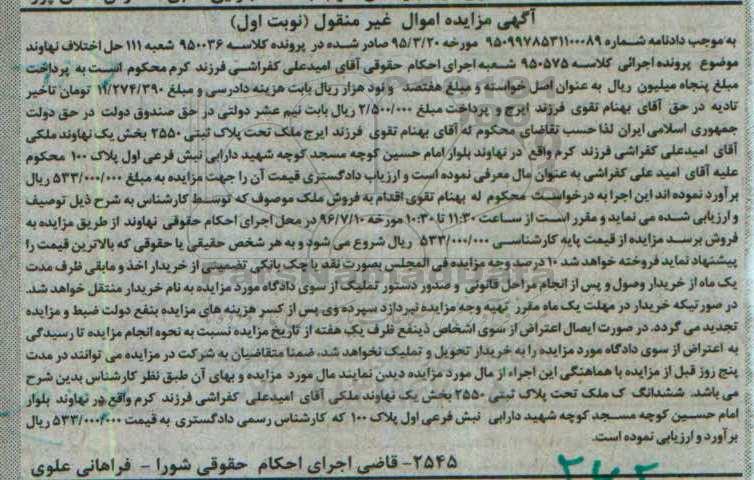 آگهی مزایده اموال غیر منقول (نوبت اول)
به موجب دادنامه شماره ۹۵۰۹۹۷۸۵۳۱۱۰۰۰۸۹ مورخه ۹۵/۳/۲۰ صادر شده در پرونده کلاسه ۹۵۰۰۳۶ شعبه ۱۱۱ حل اختلاف نهاوند
موضوع پرونده اجرائی کلاسه ۹۵۰۵۷۵ شعبه اجرای احکام حقوقی آقای امیدعلی کفراشی فرزند کرم محکوم است به پرداخت
مبلغ پنجاه میلیون ریال به عنوان اصل خواسته و مبلغ هفتصد و نود هزار ریال بابت هزینه دادرسی و مبلغ ۱۱/۲۷۴/۳۹۰ تومان تأخیر
تادیه در حق آقای بهنام تقوی فرزند ایرج و پرداخت مبلغ ۲/۵۰۰/۰۰۰ ریال بابت نیم عشر دولتی در حق صندوق دولت در حق دولت
جمهوری اسلامی ایران لذا حسب تقاضای محکوم له آقای بهنام تقوی فرزند ایرج ملک تحت پلاک ثبتی ۲۵۵۰ بخش یک نهاوند ملکی
آقای امیدعلی کفراشی فرزند کرم واقع در نهاوند بلوار امام حسین کوچه مسجد کوچه شهید دارابی نبش فرعی اول پلاک ۱۰۰ محکوم
علیه آقای امید علی کفراشی به عنوان مال معرفی نموده است و ارزیاب دادگستری قیمت آن را جهت مزایده به مبلغ ۵۳۳/۰۰۰/۰۰۰ ریال
برآورد نموده اند این اجرا به درخواست محکوم له بهنام تقوی اقدام به فروش ملک موصوف که توسط کارشناس به شرح ذیل توصیف
و ارزیابی شده می نماید و مقرر است از ساعت ۱۱:۳۰ تا ۱۰:۳۰ مورخه ۹۶/۷/۱۰ در محل اجرای احکام حقوقی نهاوند از طریق مزایده به
فروش برسد مزایده از قیمت پایه کارشناسی ۵۳۳/۰۰۰/۰۰۰ ریال شروع می شود و به هر شخص حقیقی یا حقوقی که بالاترین قیمت را
پیشنهاد نماید فروخته خواهد شد ۱۰ درصد وجه مزایده فی المجلس بصورت نقد یا چک بانکی تضمینی از خریدار اخذ و مابقی ظرف مدت
یک ماه از خریدار وصول و پس از انجام مراحل قانونی و صدور دستور تملیک از سوی دادگاه مورد مزایده به نام خریدار منتقل خواهد شد.
در صورتیکه خریدار در مهلت یک ماه مقرر تهیه وجه مزایده نپردازد سپرده وی پس از کسر هزینه های مزایده بنفع دولت ضبط و مزایده
تجدید می گردد. در صورت ایصال اعتراض از سوی اشخاص ذینفع ظرف یک هفته از تاریخ مزایده نسبت به نحوه انجام مزایده تا رسیدگی
به اعتراض از سوی دادگاه مورد مزایده را به خریدار تحویل و تملیک نخواهد شد، ضمنا متقاضیان به شرکت در مزایده می توانند در مدت
پنج روز قبل از مزایده با هماهنگی این اجراء از مال مورد مزایده دیدن نمایند مال مورد مزایده و بهای آن طبق نظر کارشناس بدین شرح
می باشد. ششدانگ ک ملک تحت پلاک ثبتی ۲۵۵۰ بخش یک نهاوند ملکی آقای امیدعلی کفراشی فرزند کرم واقع در نهاوند بلوار
امام حسین کوچه مسجد کوچه شهید دارابی نبش فرعی اول پلاک ۱۰۰ که کارشناس رسمی دادگستری به قیمت ۵۳۳/۰۰۰/۰۰۰ ریال
برآورد و ارزیابی نموده است.
۲۵۴۵- قاضی اجرای احکام حقوقی شورا - فراهانی علوی